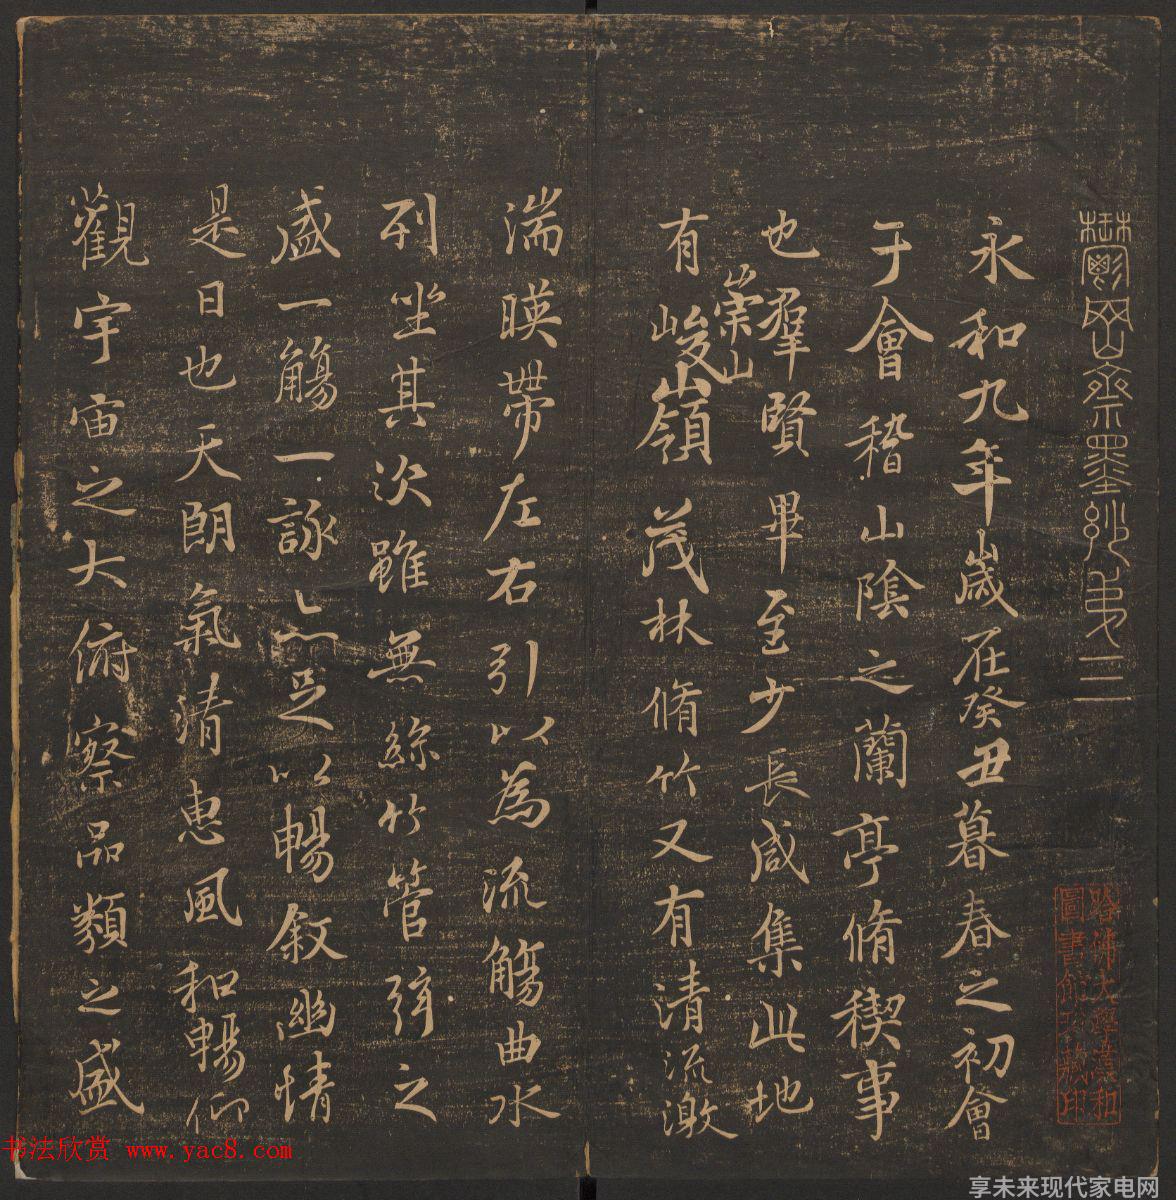 鬱岡齋墨妙第三
永和九年歲在癸丑暮春之初會
于會稽山陰之蘭亭脩稧事
也羣賢畢至少長咸集此地
有崇山峻領茂林脩竹又有清流激
湍暎帶左右引以為流觴曲水
列坐其次雖無絲竹管弦之
盛一觴一詠亦足以暢叙幽情
是日也天朗氣清惠風和暢仰
觀宇宙之大俯察品類之盛
哈佛大學漢和
圖書館珍藏印
书法欣赏 www.yac8.com
享未来现代家电网